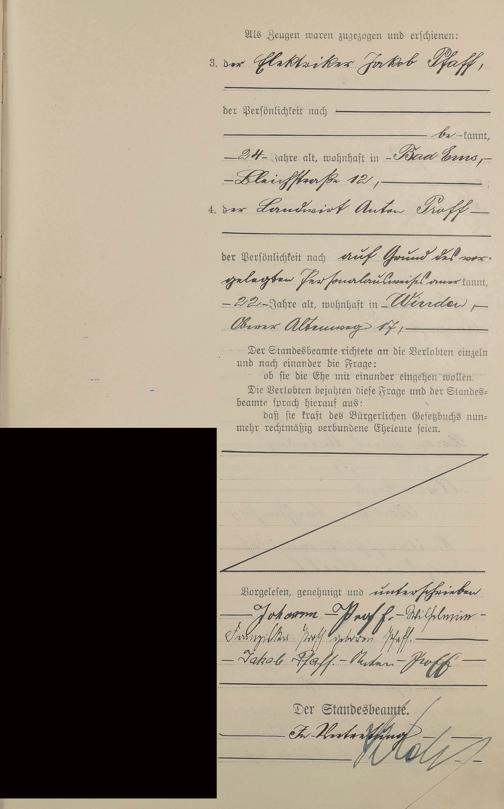 Als Zeugen waren zugezogen und erschienen:
3. der Elektriker Jakob Pfaff,
der Persönlichkeit nach
be kannt,
24 Jahre alt, wohnhaft in Bad Ems,
Bleichstraße 12,
4. der Landwirt Anton Proff
der Persönlichkeit nach auf Grund des vor-
gelegten Personalausweises aner kannt,
22 Jahre alt, wohnhaft in Wenden,
Oberer Altenweg 17,
Der Standesbeamte richtete an die Verlobten einzeln
und nach einander die Frage:
ob sie die Ehe mit einander eingehen wollen.
Die Verlobten bejahten diese Frage und der Standes=
beamte sprach hierauf aus:
daß sie kraft des Bürgerlichen Gesetzbuchs nun=
mehr rechtmäßig verbundene Eheleute seien.
Vorgelesen, genehmigt und unterschrieben
Johann Proff. Wilhelmine
Franziska Proff geborene Pfaff.
Jakob Pfaff. Anton Proff
Der Standesbeamte.
In Vertretung